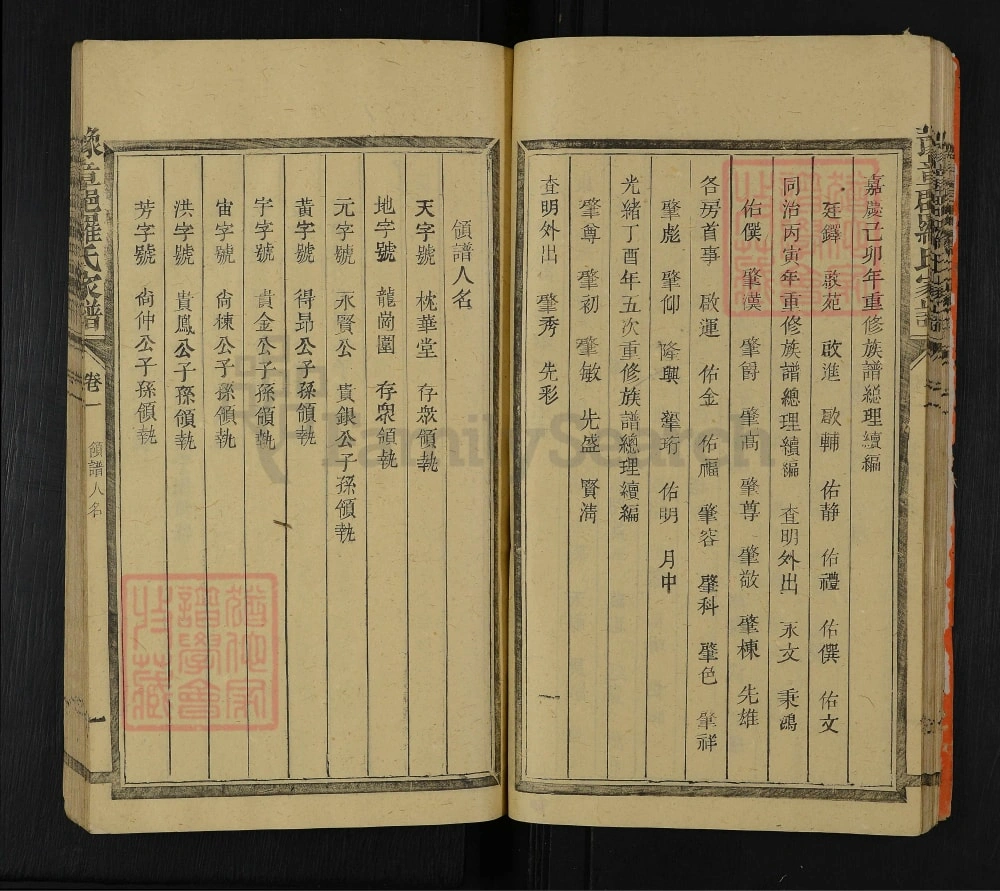 嘉慶己卯年重修族譜總理續編
廷鐸 啟苑 啟進 啟輔 佑静 佑禮 佑僎 佑文
同治丙寅年重修族譜總理續編 查明外出 永文 秉鴻
佑僎 肇漢 肇爵 肇高 肇尊 肇敬 肇棟 先雄
各房首事 啟運 佑金 佑福 肇容 肇科 肇色 肇祥
肇彪 肇仰 隆興 肇珩 佑明 月中
光緒丁酉年五次重修族譜總理續編
肇尊 肇初 肇敏 先盛 賢清
查明外出 肇秀 先彩
一
領譜人名
天字號 枕華堂 存衆領執
地字號 龍崗圍 存衆領執
元字號 永賢公 貴銀公子孫領執
黃字號 得昻公子孫領執
宇字號 貴金公子孫領執
宙字號 尙棟公子孫領執
洪字號 貴鳳公子孫領執
芳字號 尙仲公子孫領執
豫章郡羅氏家譜
卷一
領譜人名
一
FamilySearch